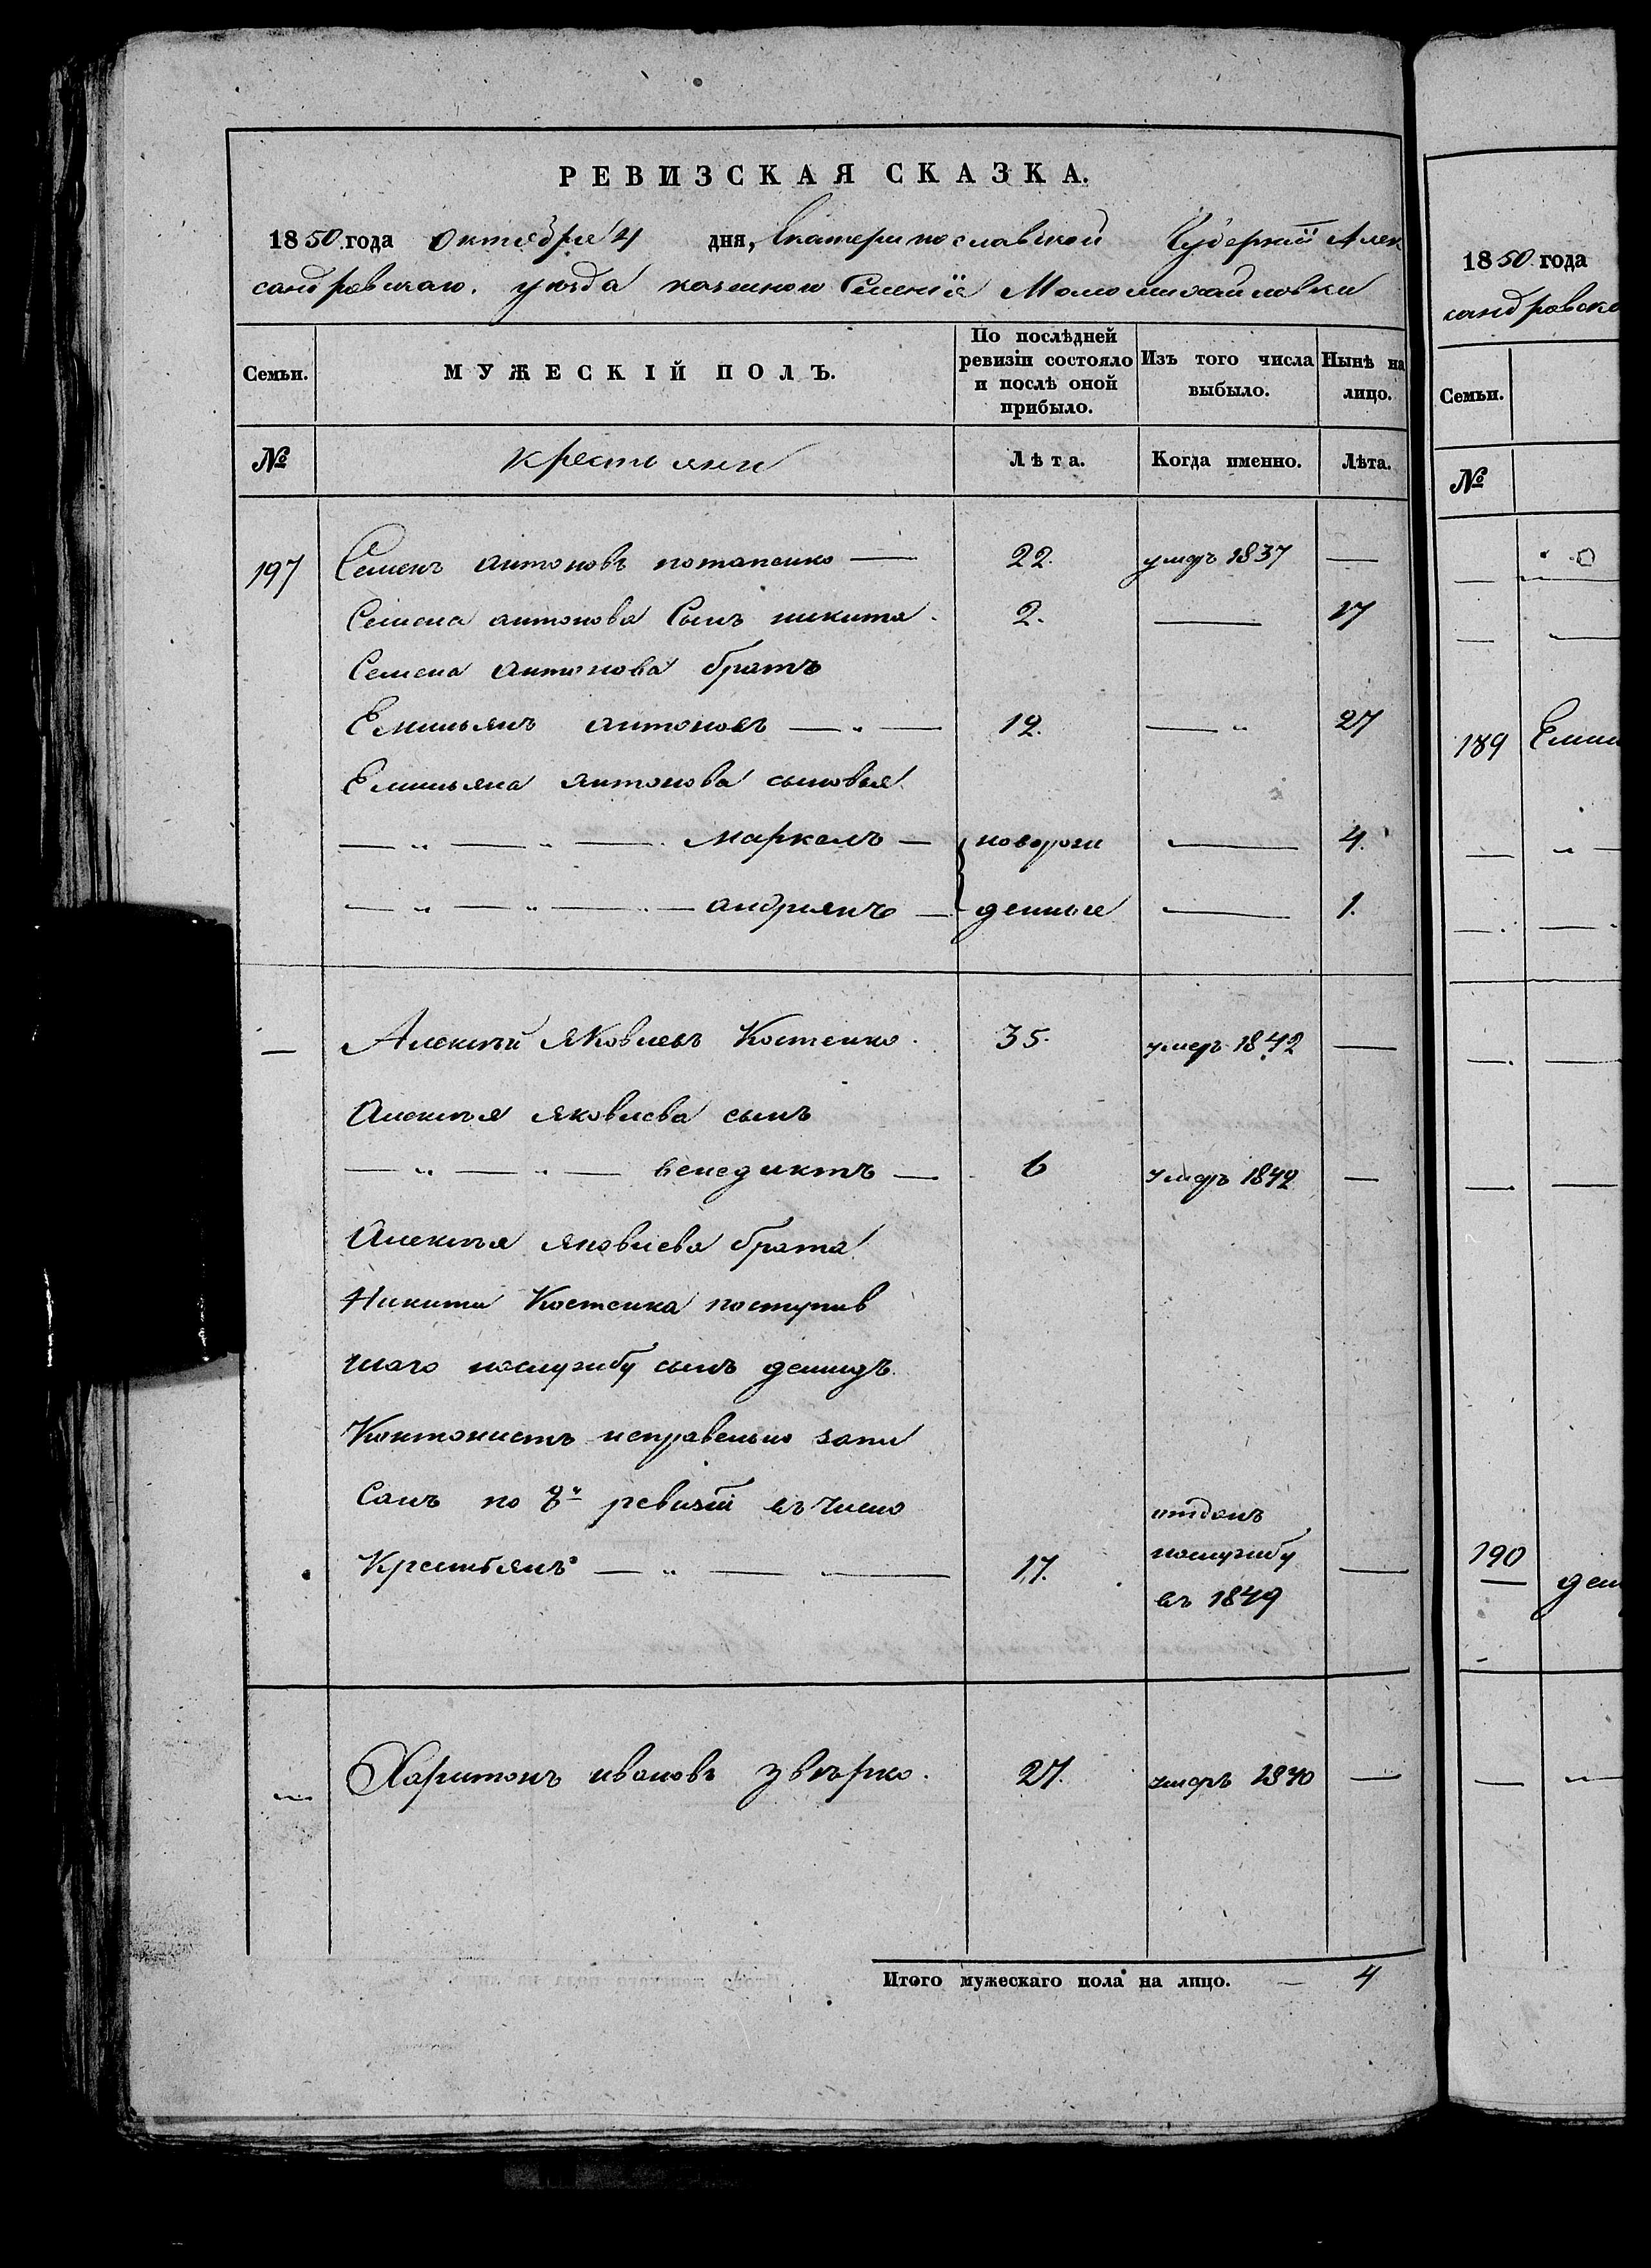 РЕВИЗСКАЯ СКАЗКА.
1850 года Октября 4 дня, Екатеринославской Губернии Алек
сандровскаго уезда казенного Селения Маломихайловки
Семьи. МУЖЕСКІЙ ПОЛЪ. По послѣдней ревизіи состояло и послѣ оной прибыло. Изъ того числа выбыло. Нынѣ на лицо.
№ крестьяни Лѣта. Когда именно. Лѣта.
197 Семенъ антоновъ потапенко — 22. умеръ 1837 —
Семена антонова Сынъ никита. 2. — 17
Семена антонова братъ
Емильянъ антоновъ — „ — 12. — „ 27
Емильяна антонова сыновья
— „ — „ — маркелъ — новорож — 4.
— „ — „ — андриянъ — денные — 1.
— Алексѣй Яковлевъ Костенко. 35. умеръ 1842 —
Алексѣя яковлева сынъ
— „ — „ — венедиктъ — 6 умеръ 1842 —
Алексѣя яковлева брата
Никити Костенка поступив
шаго наслужбу сынъ демидъ
Контонистъ неправельно запи
санъ по 8й ревизіи въ число
Крестьянъ — „ — — 17. отданъ наслужбу въ 1849 —
— Харитонъ ивановъ звѣрко. 27. умеръ 1840 —
Итого мужескаго пола на лицо. — 4
1850 года
сандровско
Семьи.
№
189 Емил
190 дем